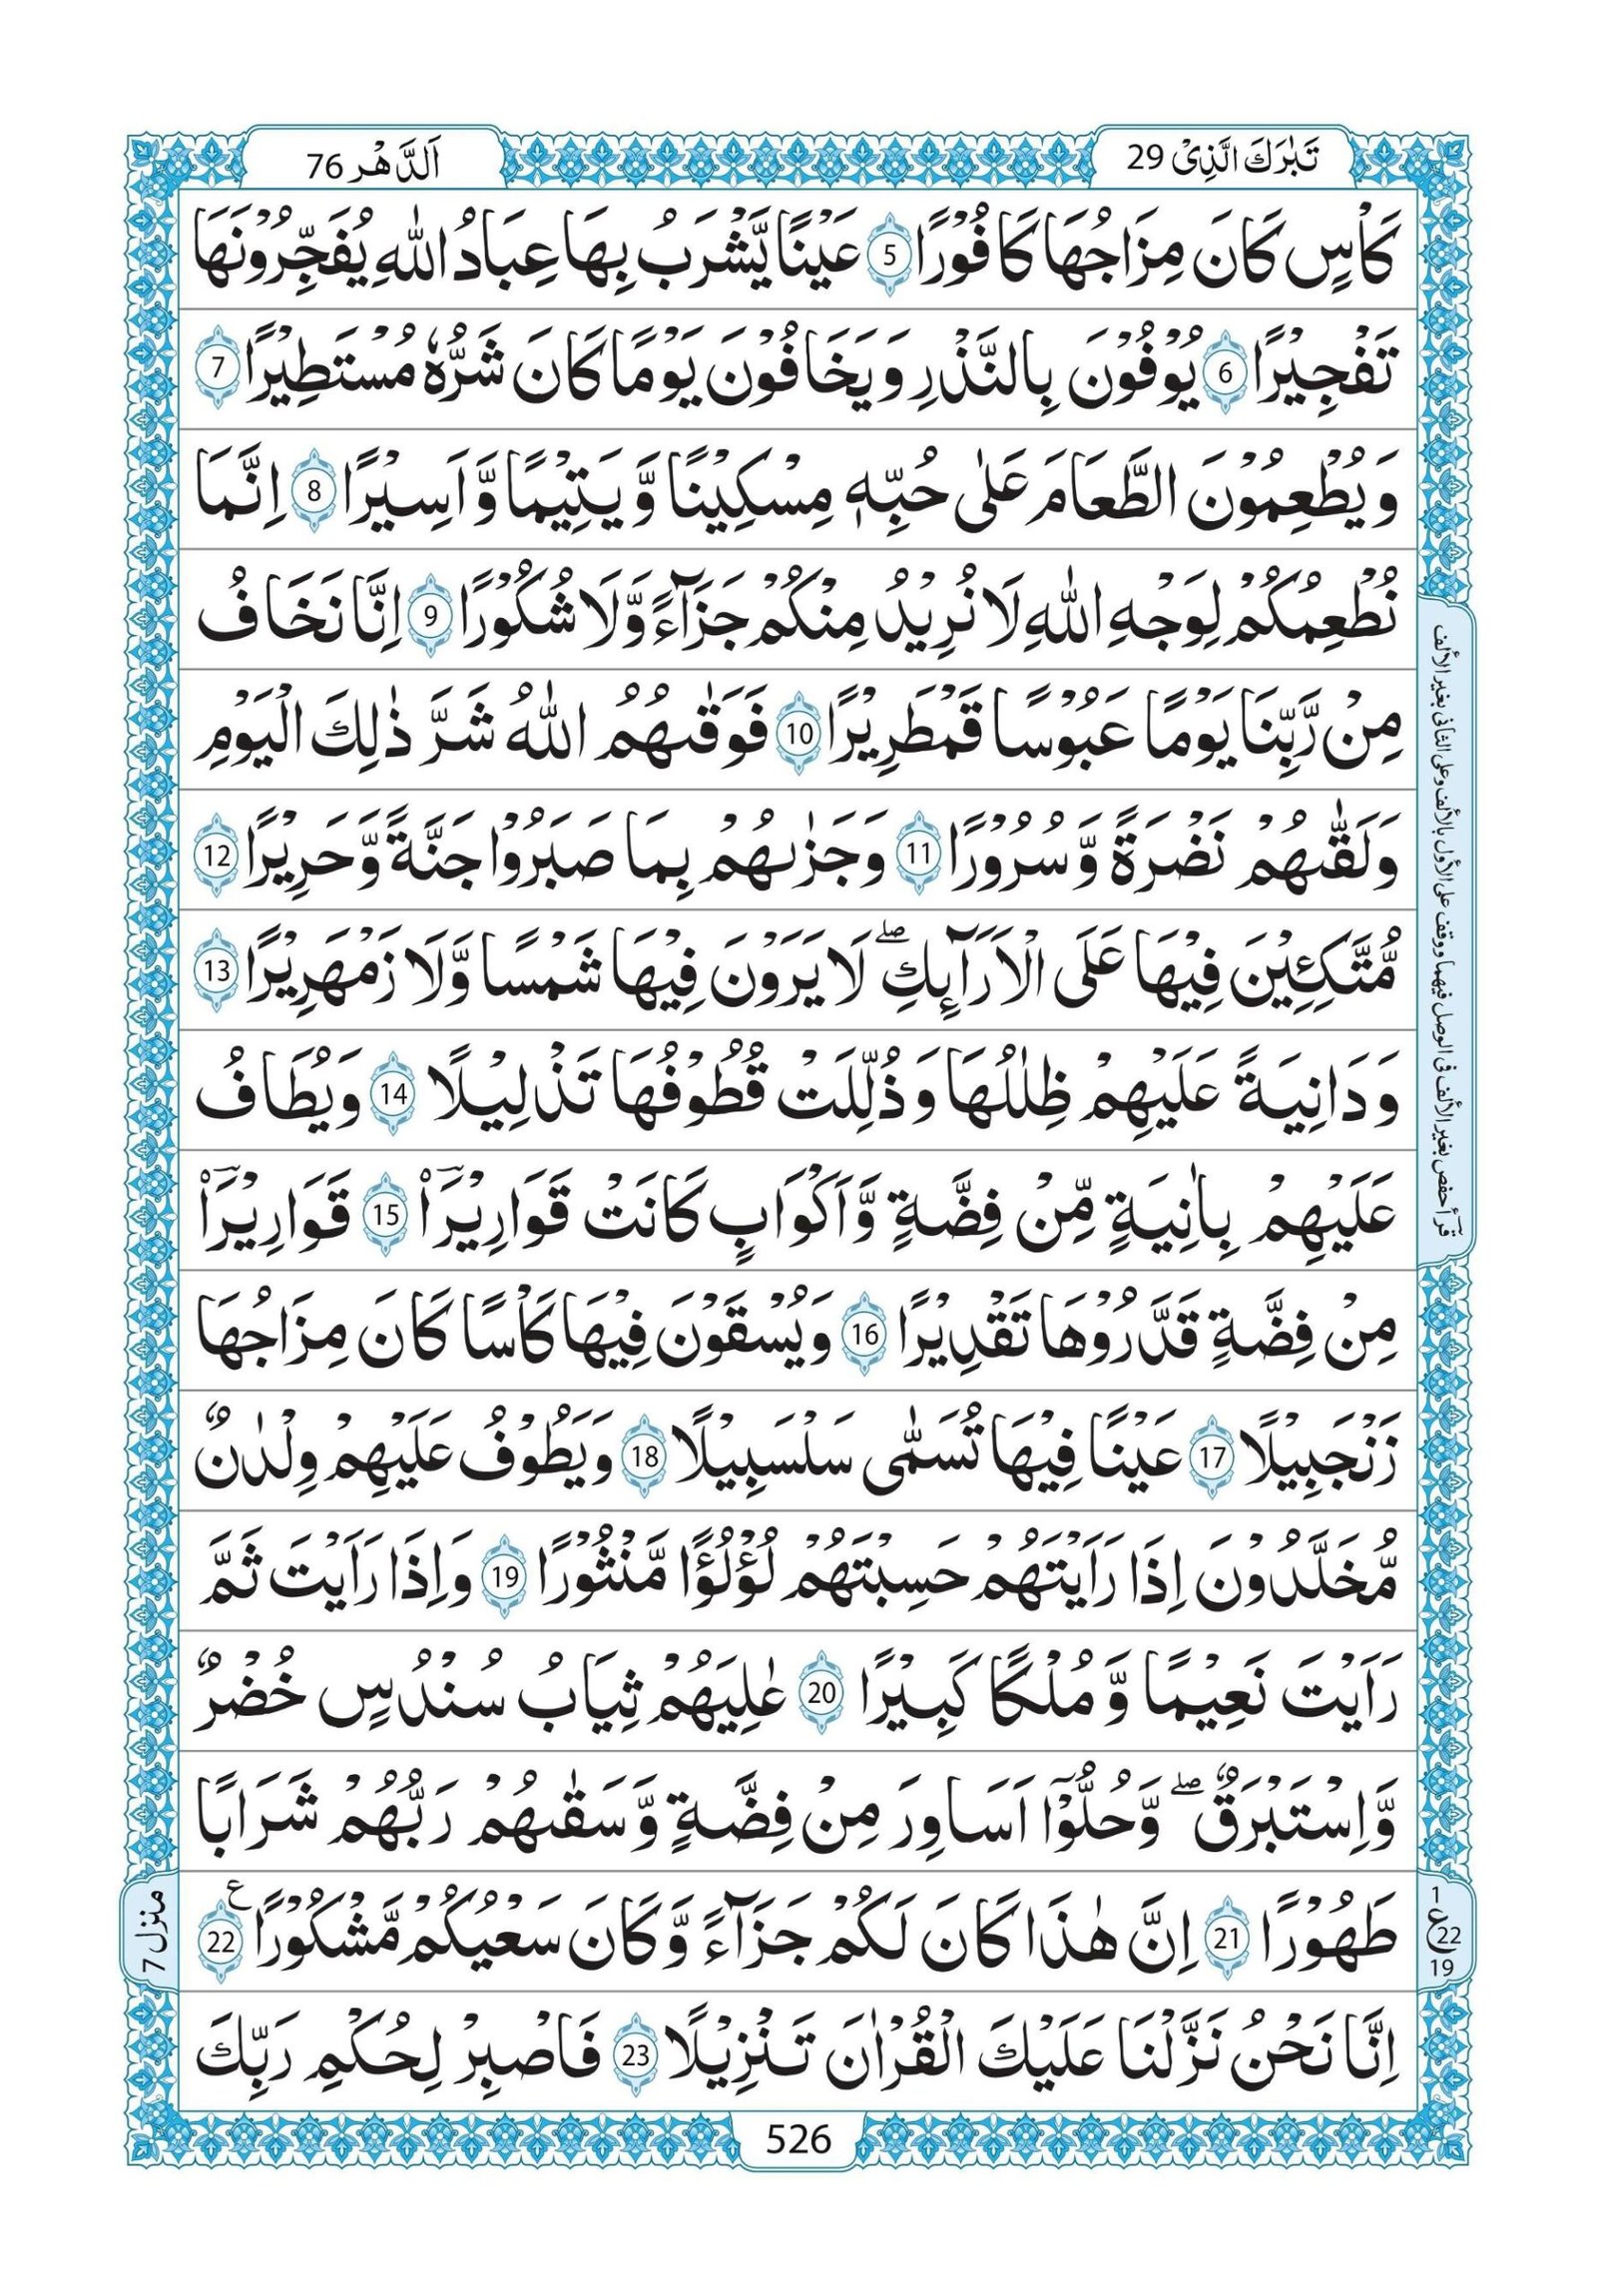 تَبٰرَكَ الَّذِىْ 29
اَلدَّهْر 76
كَاْسٍ كَانَ مِزَاجُهَا كَافُوْرًا 5 عَيْنًا يَّشْرَبُ بِهَا عِبَادُ اللّٰهِ يُفَجِّرُوْنَهَا
تَفْجِيْرًا 6 يُوْفُوْنَ بِالنَّذْرِ وَيَخَافُوْنَ يَوْمًا كَانَ شَرُّهٗ مُسْتَطِيْرًا 7
وَيُطْعِمُوْنَ الطَّعَامَ عَلٰى حُبِّهٖ مِسْكِيْنًا وَّيَتِيْمًا وَّاَسِيْرًا 8 اِنَّمَا
نُطْعِمُكُمْ لِوَجْهِ اللّٰهِ لَا نُرِيْدُ مِنْكُمْ جَزَآءً وَّلَا شُكُوْرًا 9 اِنَّا نَخَافُ
مِنْ رَّبِّنَا يَوْمًا عَبُوْسًا قَمْطَرِيْرًا 10 فَوَقٰىهُمُ اللّٰهُ شَرَّ ذٰلِكَ الْيَوْمِ
وَلَقّٰىهُمْ نَضْرَةً وَّسُرُوْرًا 11 وَجَزٰىهُمْ بِمَا صَبَرُوْا جَنَّةً وَّحَرِيْرًا 12
مُّتَّكِئِيْنَ فِيْهَا عَلَى الْاَرَآئِكِ ۖ لَا يَرَوْنَ فِيْهَا شَمْسًا وَّلَا زَمْهَرِيْرًا 13
وَدَانِيَةً عَلَيْهِمْ ظِلٰلُهَا وَذُلِّلَتْ قُطُوْفُهَا تَذْلِيْلًا 14 وَيُطَافُ
عَلَيْهِمْ بِاٰنِيَةٍ مِّنْ فِضَّةٍ وَّاَكْوَابٍ كَانَتْ قَوَارِيْرَا۟ 15 قَوَارِيْرَا۟
مِنْ فِضَّةٍ قَدَّرُوْهَا تَقْدِيْرًا 16 وَيُسْقَوْنَ فِيْهَا كَاْسًا كَانَ مِزَاجُهَا
زَنْجَبِيْلًا 17 عَيْنًا فِيْهَا تُسَمّٰى سَلْسَبِيْلًا 18 وَيَطُوْفُ عَلَيْهِمْ وِلْدٰنٌ
مُّخَلَّدُوْنَ اِذَا رَاَيْتَهُمْ حَسِبْتَهُمْ لُؤْلُؤًا مَّنْثُوْرًا 19 وَاِذَا رَاَيْتَ ثَمَّ
رَاَيْتَ نَعِيْمًا وَّمُلْكًا كَبِيْرًا 20 عٰلِيَهُمْ ثِيَابُ سُنْدُسٍ خُضْرٌ
وَّاِسْتَبْرَقٌ ۖ وَّحُلُّوْٓا اَسَاوِرَ مِنْ فِضَّةٍ وَّسَقٰىهُمْ رَبُّهُمْ شَرَابًا
طَهُوْرًا 21 اِنَّ هٰذَا كَانَ لَكُمْ جَزَآءً وَّكَانَ سَعْيُكُمْ مَّشْكُوْرًا 22 ع
اِنَّا نَحْنُ نَزَّلْنَا عَلَيْكَ الْقُرْاٰنَ تَنْزِيْلًا 23 فَاصْبِرْ لِحُكْمِ رَبِّكَ
قرأ حفص بغير الألف فى الوصل فيهما ووقف على الأول بالألف وعلى الثانى بغير الألف
1
ع 22
19
منزل 7
526